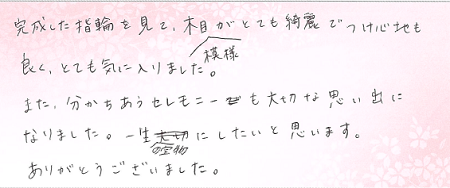 完成した指輪を見て、木目がとても綺麗でつけ心地も
模様
良く、とても気に入りました。
また、分かちあうセレモニーでも大切な思い出に
なりました。一生大切にしたいと思います。
の宝物
ありがとうございました。